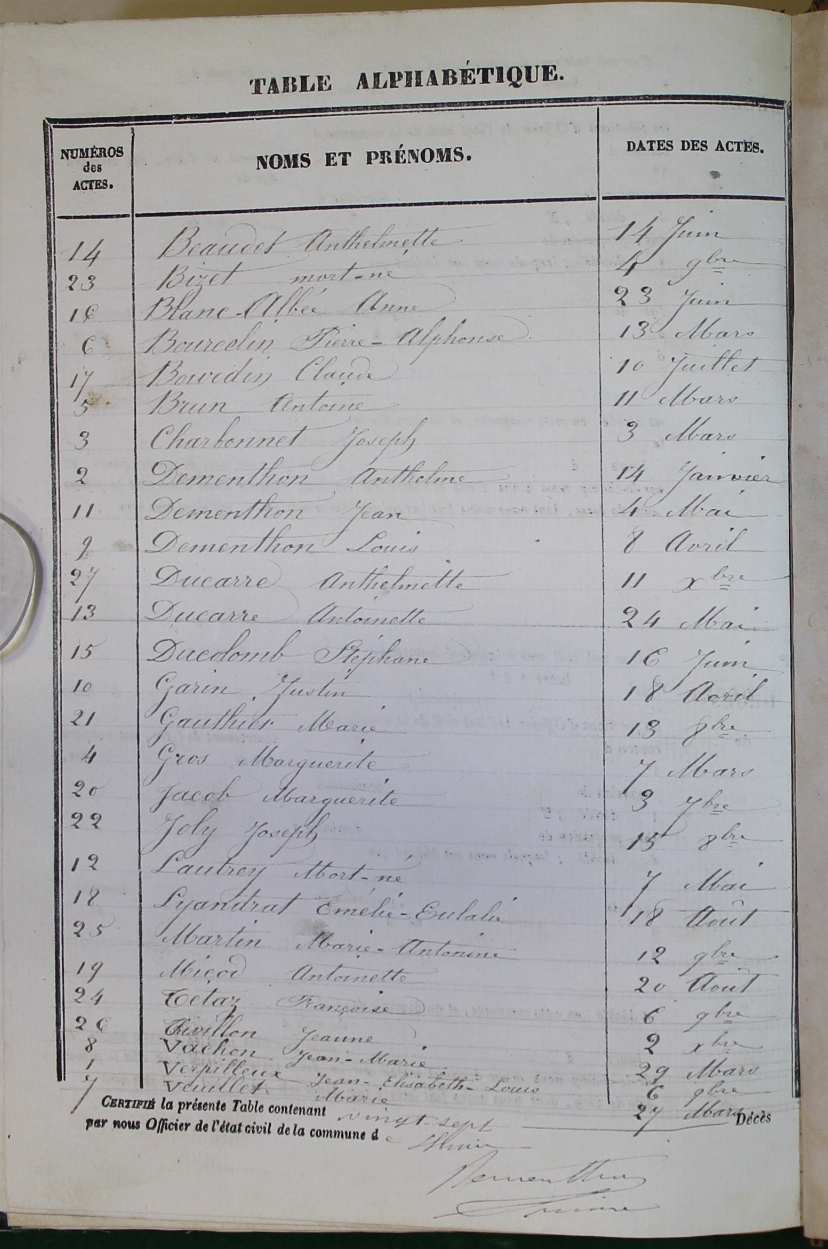 TABLE ALPHABÉTIQUE.
NUMÉROS des ACTES. NOMS ET PRÉNOMS. DATES DES ACTES.
14 Beaudet Anthelmette 14 Juin
23 Bizet mort-né 4 9bre
16 Blanc-Albée Anne 23 Juin
6 Bourcelin Pierre-Alphonse 13 Mars
17 Bourdin Claude 10 Juillet
5 Brun Antoine 11 Mars
3 Charbonnet Joseph 3 Mars
2 Dementhon Anthelme 14 Janvier
11 Dementhon Jean 4 Mai
9 Dementhon Louis 8 Avril
27 Ducarre Anthelmette 11 xbre
13 Ducarre Antoinette 24 Mai
15 Ducolomb Stéphane 16 Juin
10 Garin Justin 18 Avril
21 Gauthier Marie 13 8bre
4 Gros Marguerite 7 Mars
20 Jacob Marguerite 3 7bre
22 Joly Joseph 15 8bre
12 Lautrey Mort-né 7 Mai
18 Lyandrat Emélie-Eulalie 18 Août
25 Martin Marie-Antonine 12 9bre
19 Antoinette 20 Août
24 Tetaz Françoise 6 9bre
26 Tivillon Jeanne 2 xbre
8 Vachon Jean-Marie 29 Mars
1 Verpilleux Jean-Elisabeth-Louis 6 9bre
7 Veuillet Marie 27 Mars
CERTIFIÉ la présente Table contenant vingt-sept Décès
par nous Officier de l'état civil de la commune d
Dementhon